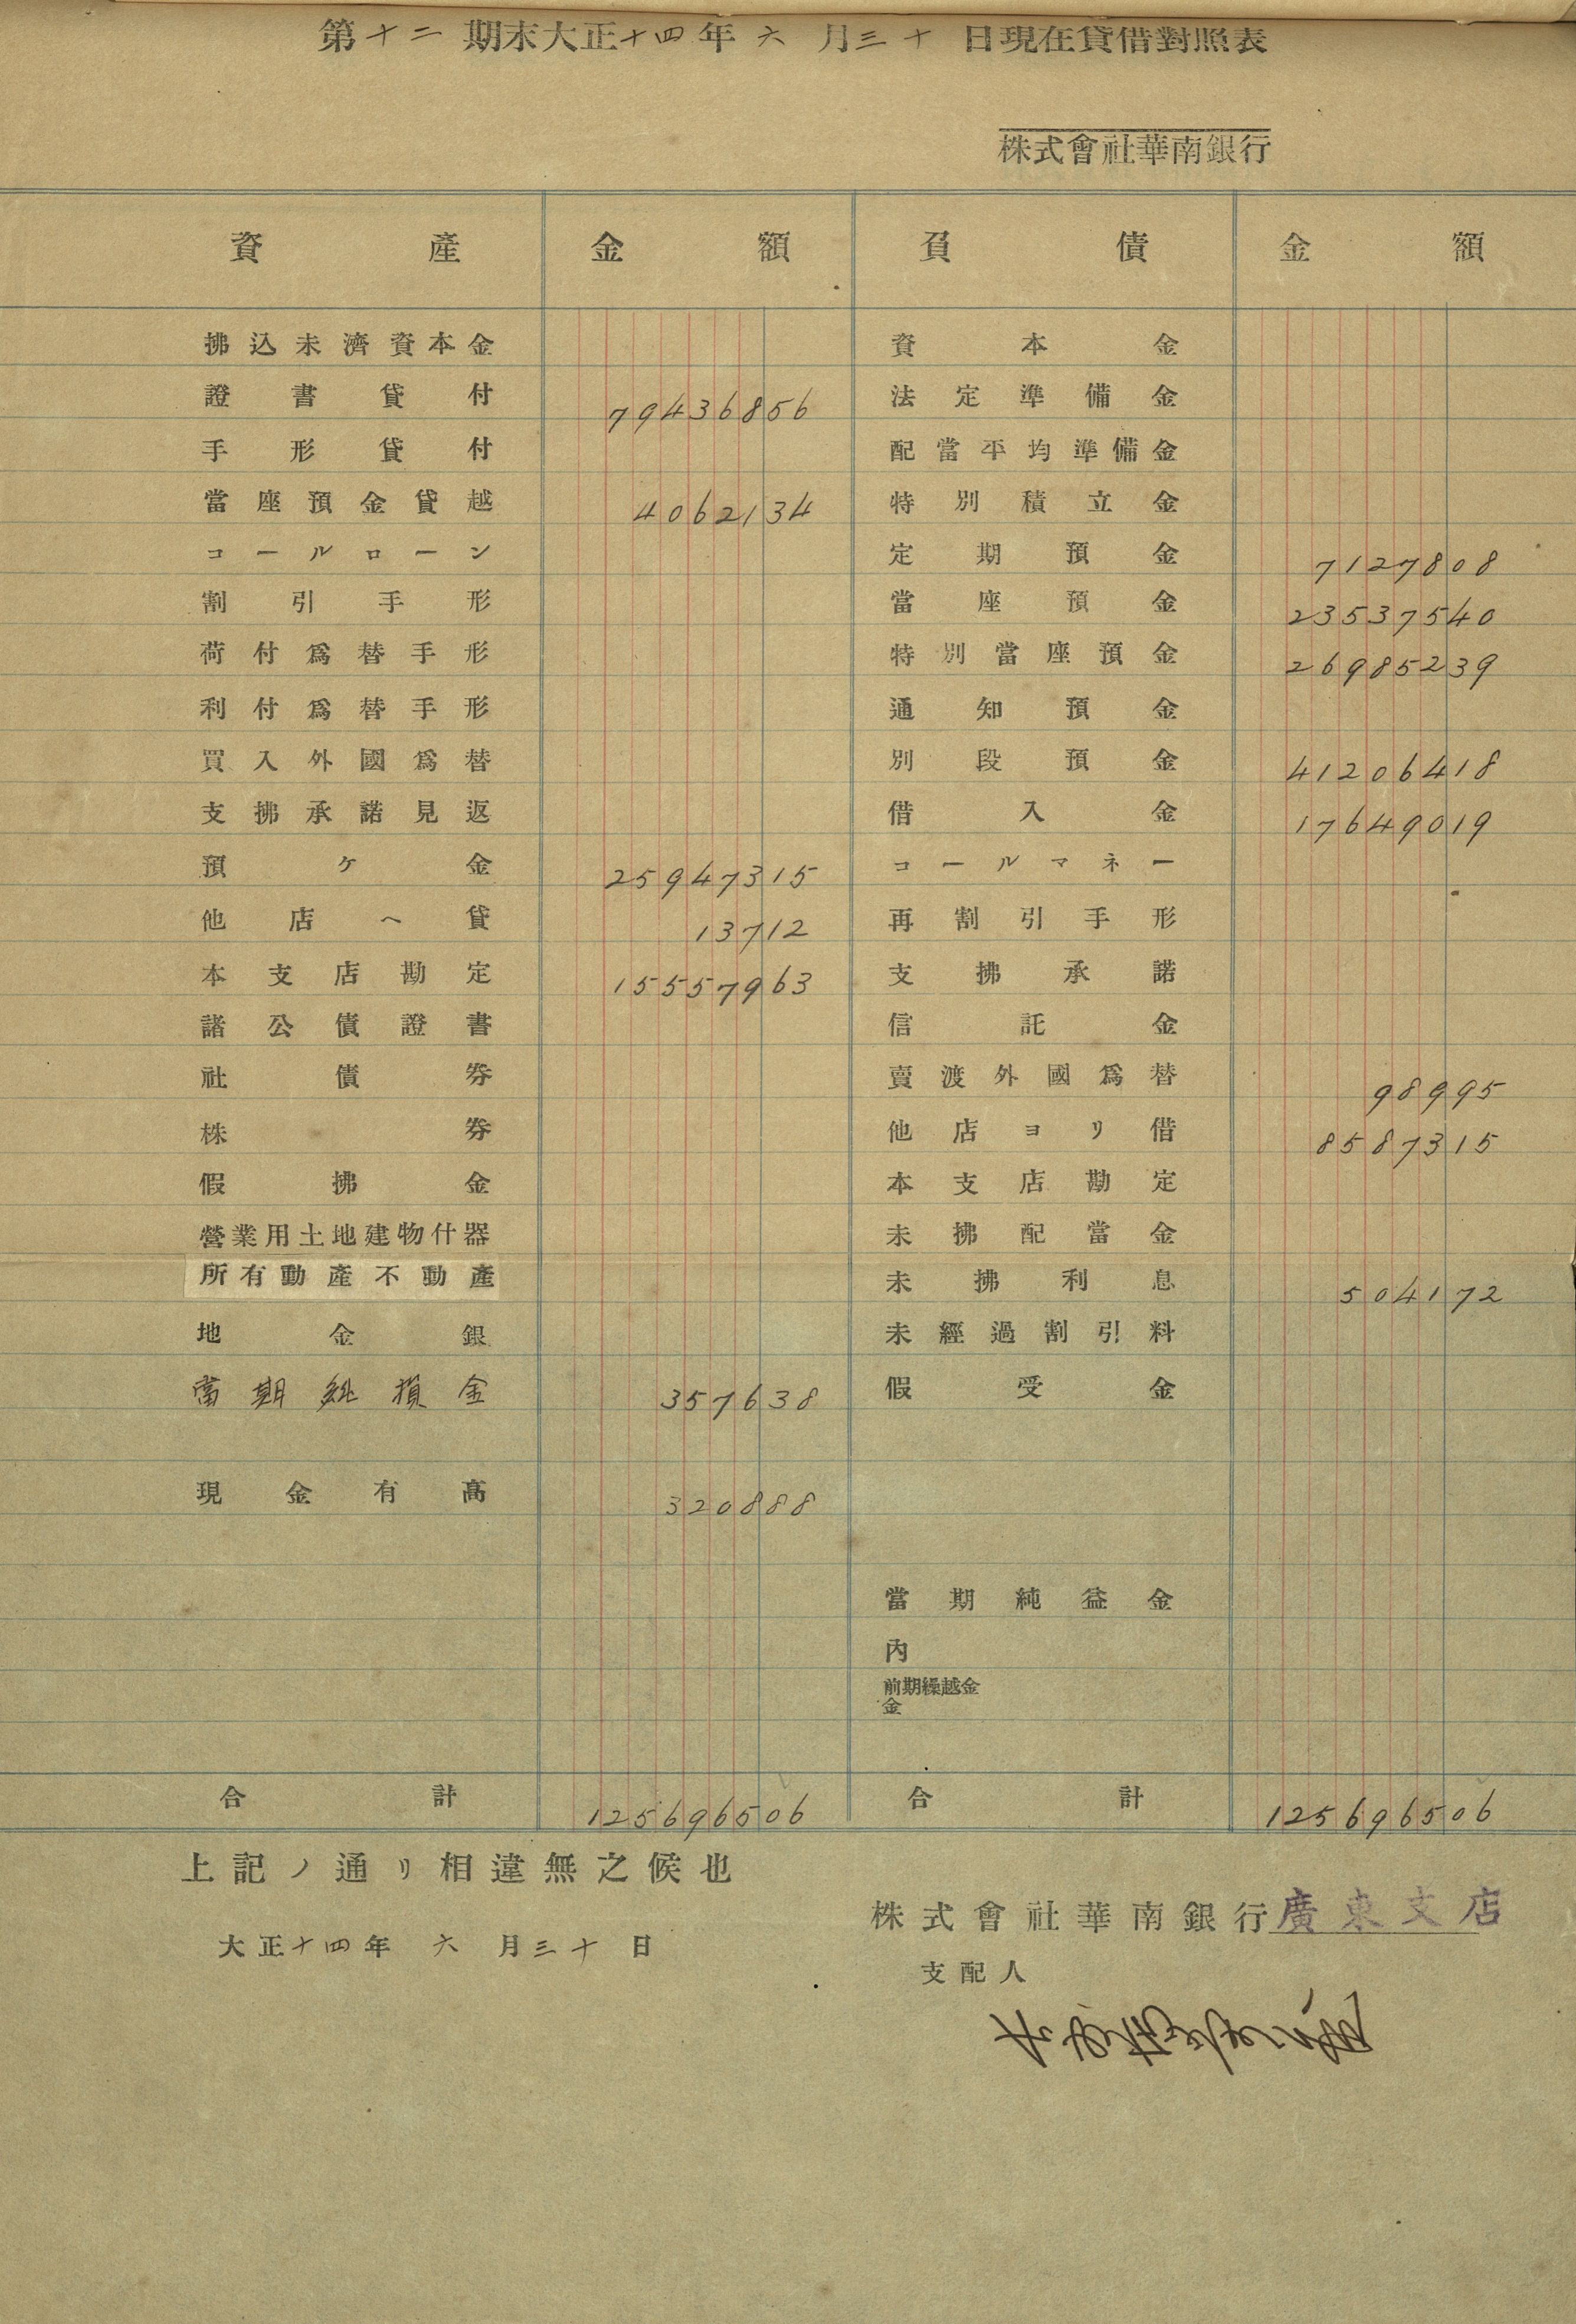 第十二期末大正十四年六月三十日現在貸借對照表
株式會社華南銀行
資產 金額 負債 金額
拂込未濟資本金 資本金
證書貸付 79436856 法定準備金
手形貸付 配當平均準備金
當座預金貸越 4062134 特別積立金
コールローン 定期預金 7127808
割引手形 當座預金 23537540
荷付爲替手形 特別當座預金 26985239
利付爲替手形 通知預金
買入外國爲替 別段預金 41206418
支拂承諾見返 借入金 17649019
預ケ金 25947315 コールマネー
他店ヘ貸 13712 再割引手形
本支店勘定 15557963 支拂承諾
諸公債證書 信託金
社債劵 賣渡外國爲替 98995
株劵 他店ヨリ借 8587315
假拂金 本支店勘定
營業用土地建物什器 未拂配當金
所有動產不動產 未拂利息 504172
地金銀 未經過割引料
當期純損金 357638 假受金
現金有高 320888
當期純益金
內
前期繰越金
金
合計 125696506 合計 125696506
上記ノ通リ相違無之候也
株式會社華南銀行廣東支店
大正十四年六月三十日
支配人